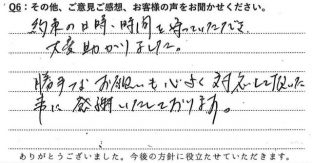 Q6：その他、ご意見ご感想、お客様の声をお聞かせください。
約束の日時・時間を守っていただき、
大変助かりました。
勝手なお願いも心よく対応して頂いた
事に感謝いたしております。
ありがとうございました。今後の方針に役立たせていただきます。